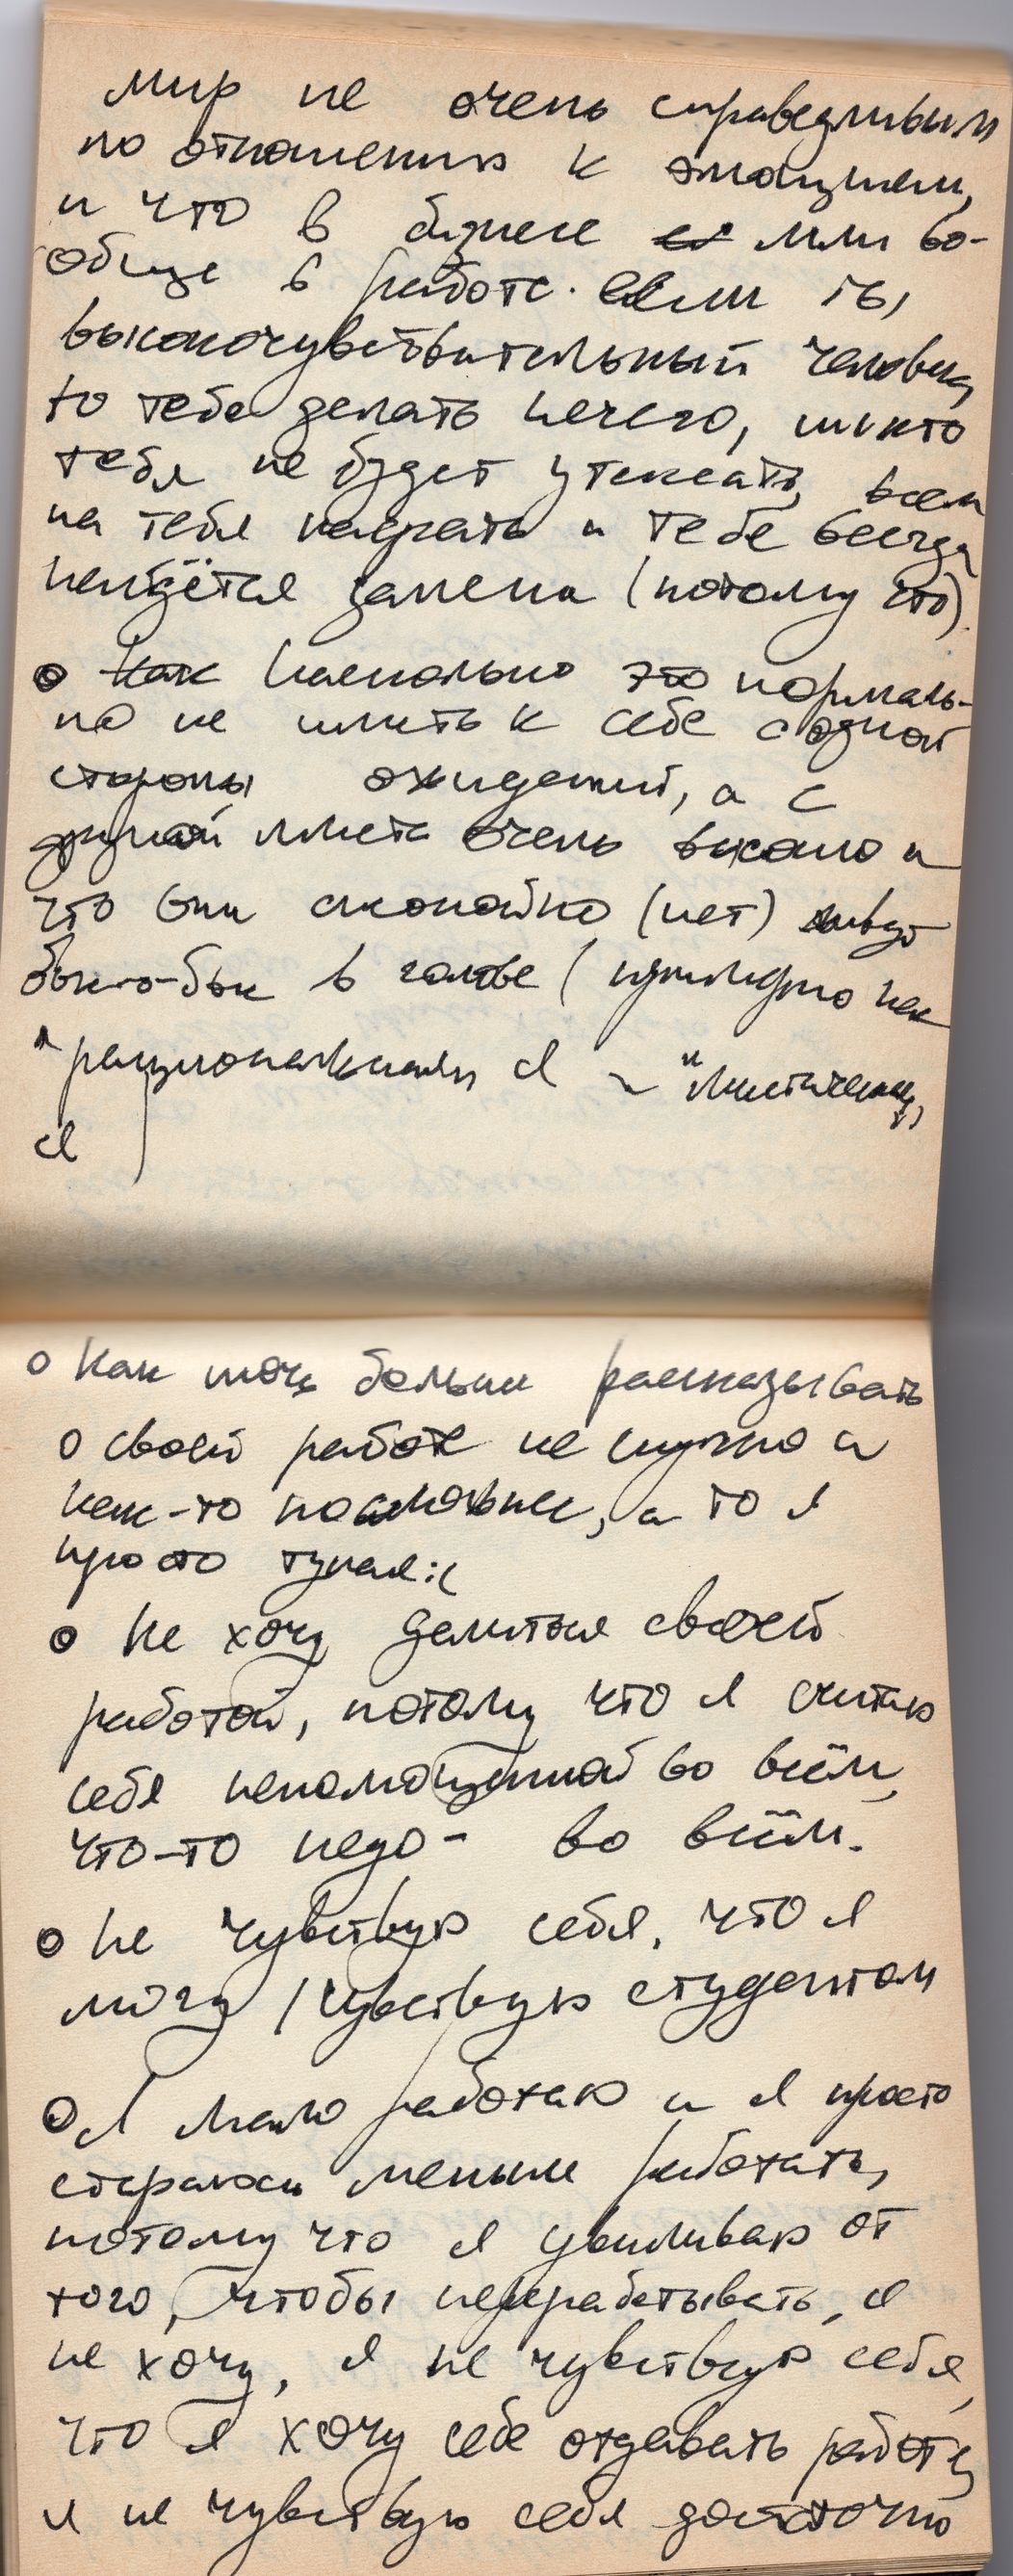 мир не очень справедливый
по отношению к эмоциям,
и что в бизнесе или во-
обще в работе если ты
высокочувствительный человек,
то тебе делать нечего, никто
тебя не будет утешать, всем
на тебя насрать и тебе всегда
найдётся замена (потому что).
о Как Насколько это нормаль-
но не иметь к себе с одной
стороны ожиданий, а с
другой иметь очень высокие и
что они спокойно (нет) живут
бок-о-бок в голове (примерно как
"рациональный я" и "мистический
я")
о Как мочь больше рассказывать
о своей работе не скучно и
как-то посложнее, а то я
просто тупая :(
о Не хочу делиться своей
работой, потому что я считаю
себя неполноценной во всём,
что-то недо- во всём.
о Не чувствую себя, что я
могу / чувствую студентом
о Я мало работаю и я просто
стараюсь меньше работать,
потому что я увиливаю от
того, чтобы перерабатывать, я
не хочу, я не чувствую себя,
что я хочу себя отдавать работе,
я не чувствую себя достаточно